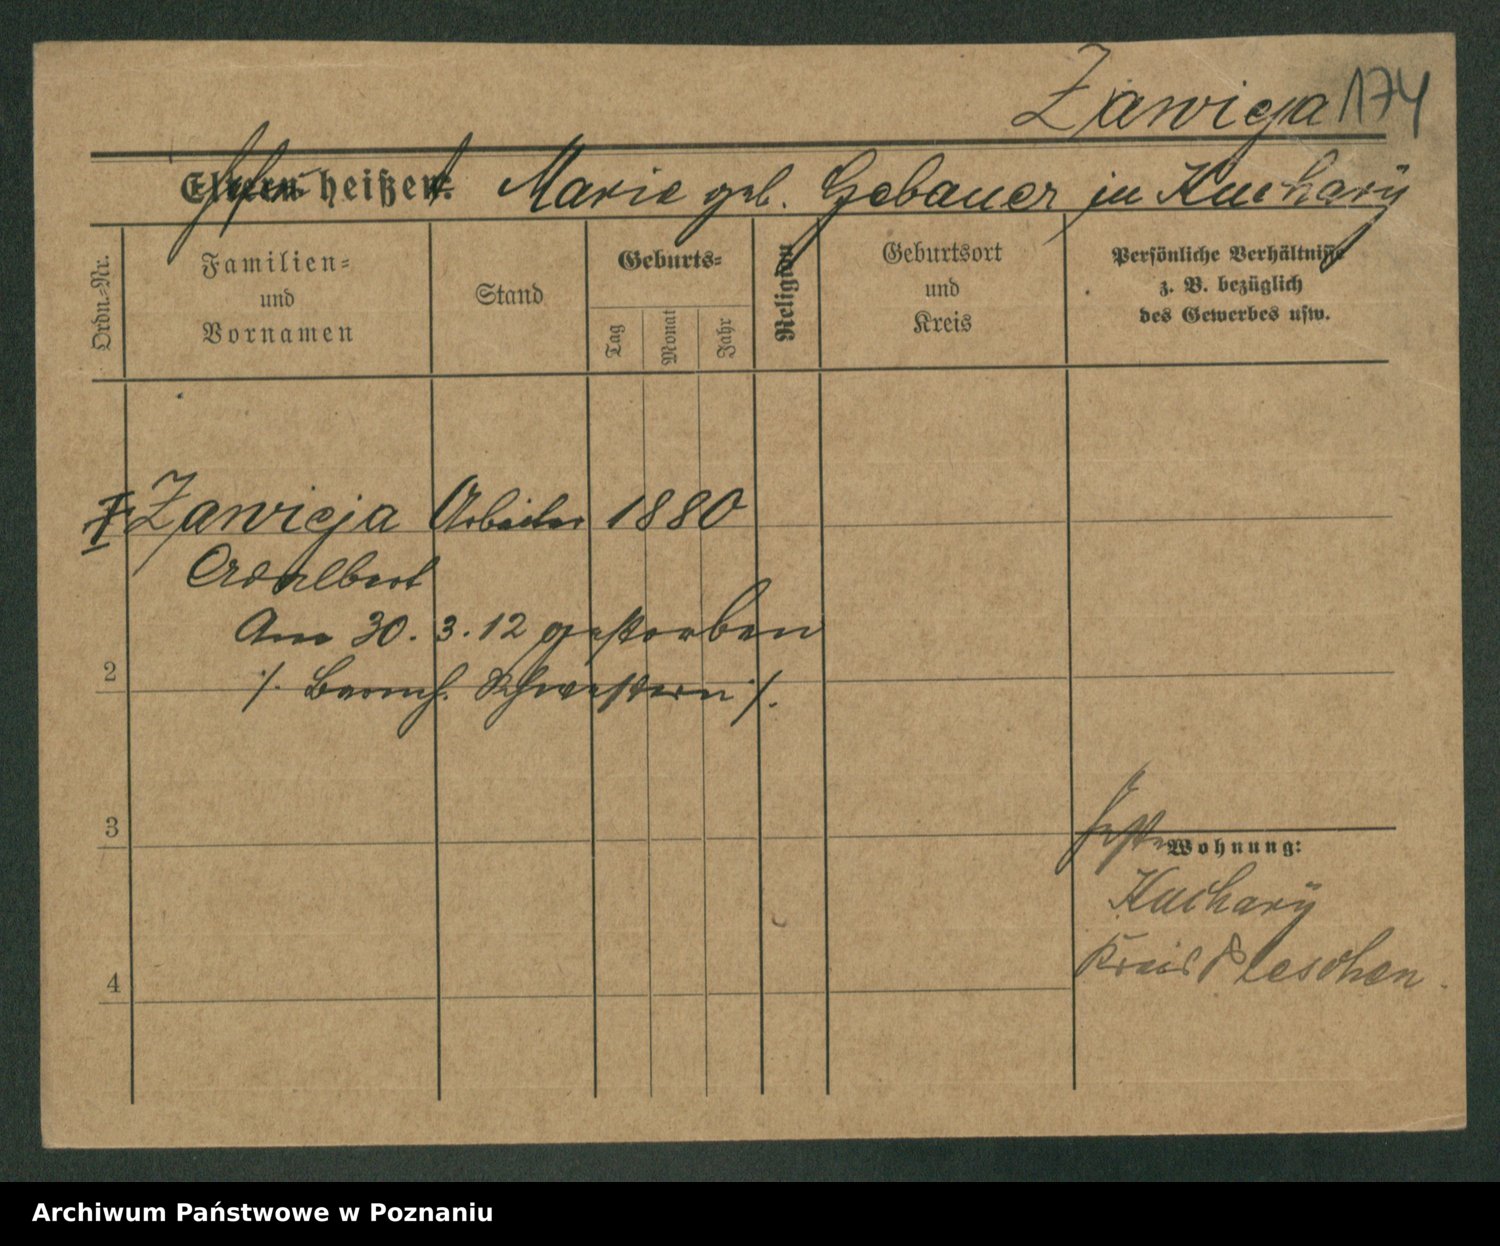 Zawieja 174
Eltern heißen. Marie geb. Gebauer in Kuchary
Ordn.-Nr.
Familien-
und
Vornamen
Stand
Geburts-
Tag
Monat
Jahr
Religion
Geburtsort
und
Kreis
Persönliche Verhältnisse
z. B. bezüglich
des Gewerbes usw.
Zawieja Arbeiter 1880
Adalbert
Am 30. 3. 12 gestorben
2
/. Barmh. Schwestern /.
3
Wohnung:
Kuchary
Kreis Pleschen.
4
Archiwum Państwowe w Poznaniu